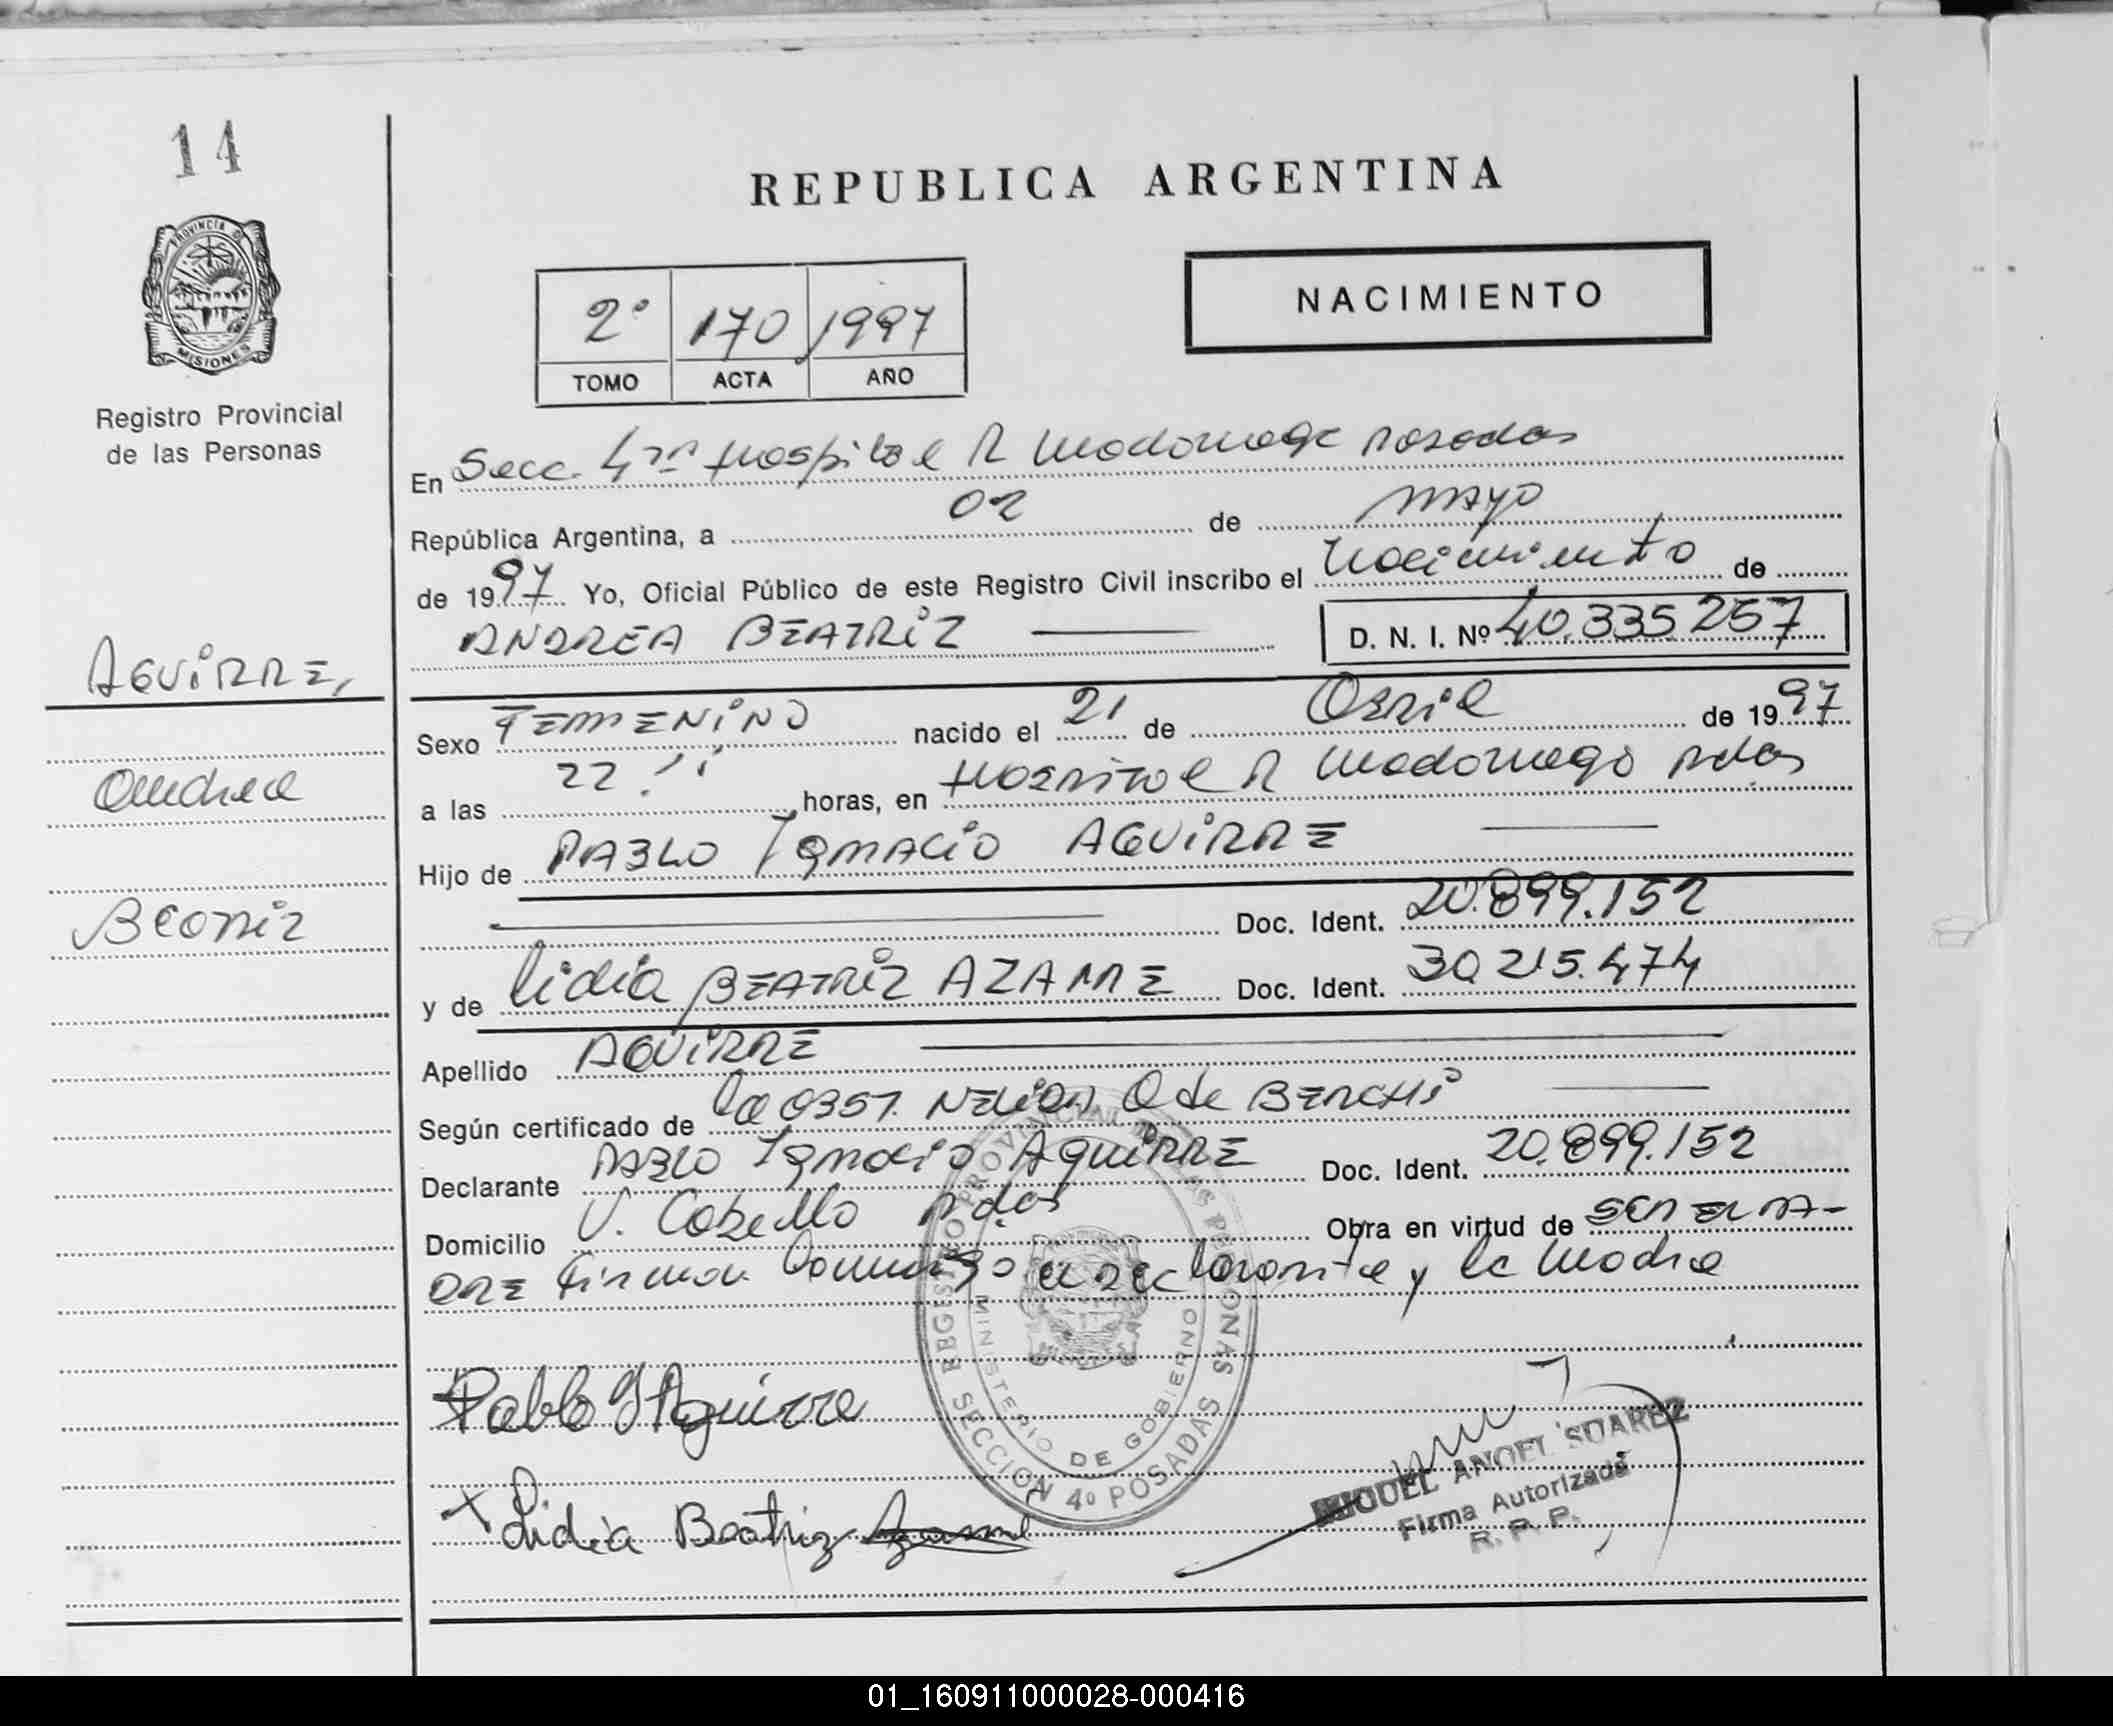 14
PROVINCIA DE
MISIONES
Registro Provincial
de las Personas
REPUBLICA ARGENTINA
2° 170 1997
TOMO ACTA AÑO
NACIMIENTO
En Secc. 4ta Hospital R Madariaga Posadas
República Argentina, a 02 de mayo
de 1997 Yo, Oficial Público de este Registro Civil inscribo el Nacimiento de
ANDREA BEATRIZ D. N. I. Nº 40.335.257
AGUIRRE,
Andrea
Beatriz
Sexo FEMENINO nacido el 21 de Abril de 1997
a las 22 horas, en Hospital R Madariaga Pdas
Hijo de PABLO Ignacio AGUIRRE
Doc. Ident. 20.899.152
y de Lidia BEATRIZ AZAME Doc. Ident. 30.215.474
Apellido AGUIRRE
Según certificado de La Obst. Nelida O de BERCHI
Declarante PABLO Ignacio AGUIRRE Doc. Ident. 20.899.152
Domicilio V. Cabello Pdas Obra en virtud de SER EL PA-
DRE Firman Conmigo el declarante y la Madre
REGISTRO PROVINCIAL DE LAS PERSONAS
MINISTERIO DE GOBIERNO
SECCION 4º POSADAS
Pablo I Aguirre
X Lidia Beatriz
MIGUEL ANGEL SUAREZ
Firma Autorizada
R. P. P.
01_160911000028-000416